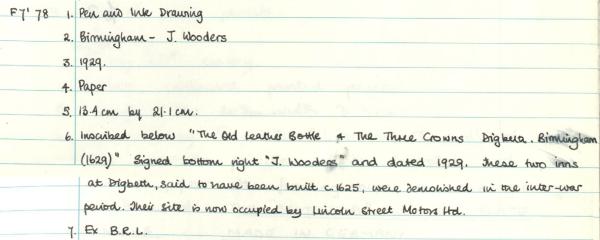 F7'78 1. Pen and Ink Drawing
2. Birmingham - J. Wooders
3. 1929.
4. Paper
5. 13.4cm by 21.1cm.
6. Inscribed below "The Old Leather Bottle & The Three Crowns Digbeth. Birmingham
(1629)" Signed bottom right "J. Wooders" and dated 1929. These two inns
at Digbeth, said to have been built c.1625, were demolished in the inter-war
period. Their site is now occupied by Lincoln Street Motors Ltd.
7. Ex B.R.L.